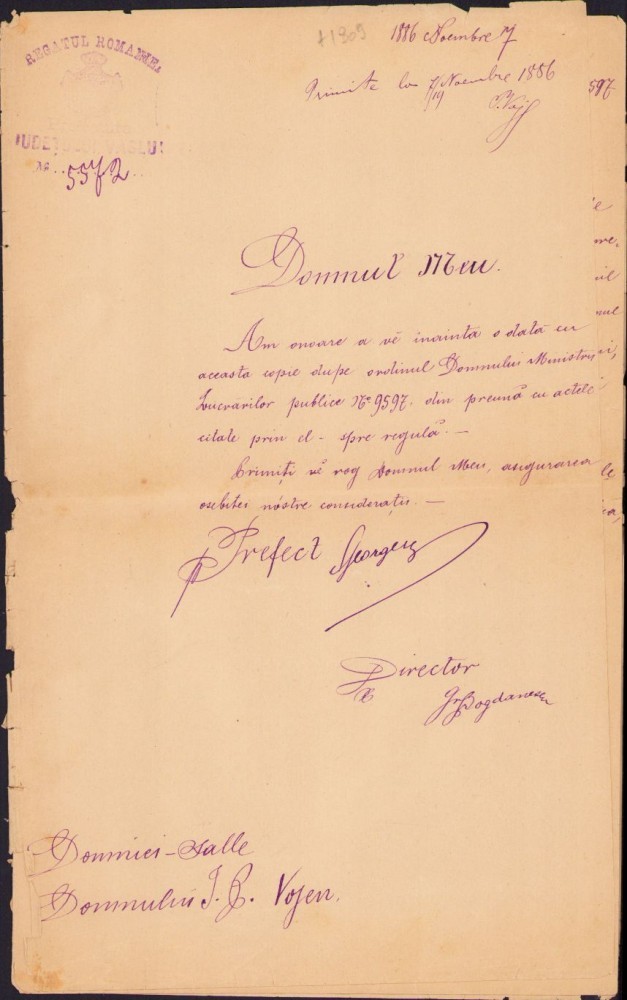 +1909
1886 Noembre 7
REGATUL ROMANIEI
Primite la 7/19 Noembre 1886
597
JUDEŢULUI VASLUI
No 5572
Domnul Meu.
Am onoare a vĕ inainta odată cu
aceasta copie dupe ordinul Domnului Ministru
Lucrărilor publice No 9597. din preună cu actele
citate prin el - spre regulă. —
Primiţi vĕ rog Domnul Meu, asigurarea
osebitei nóstre consideraţii. —
Prefect
Director
Gr. Bogdanescu
Domniei-Salle
Domnului I. P. Vojen.